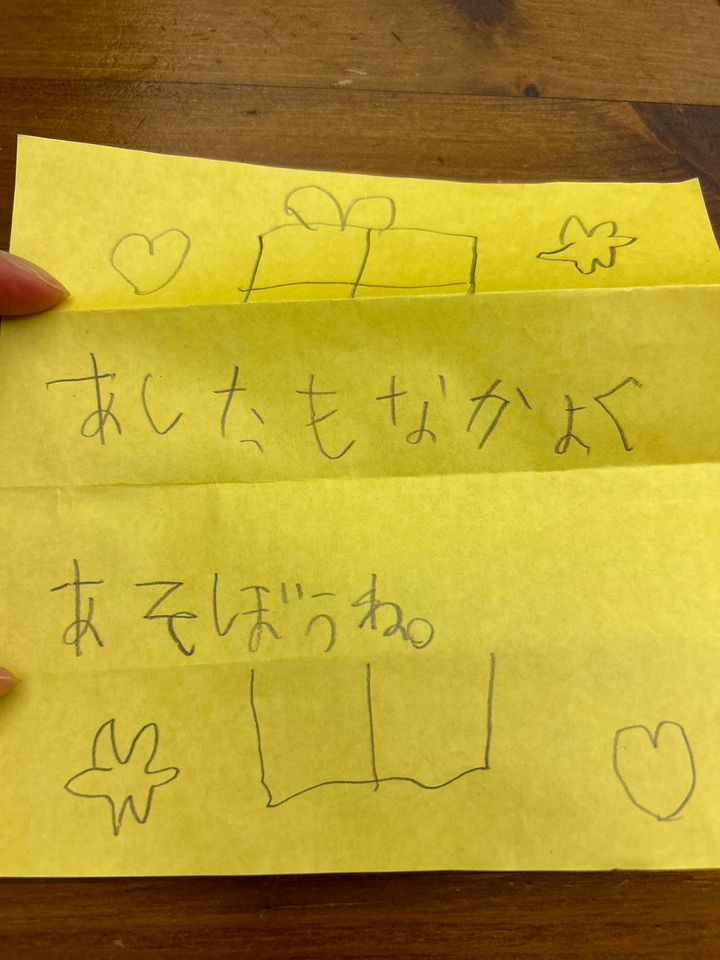 あしたもなかよく
あそぼうね。